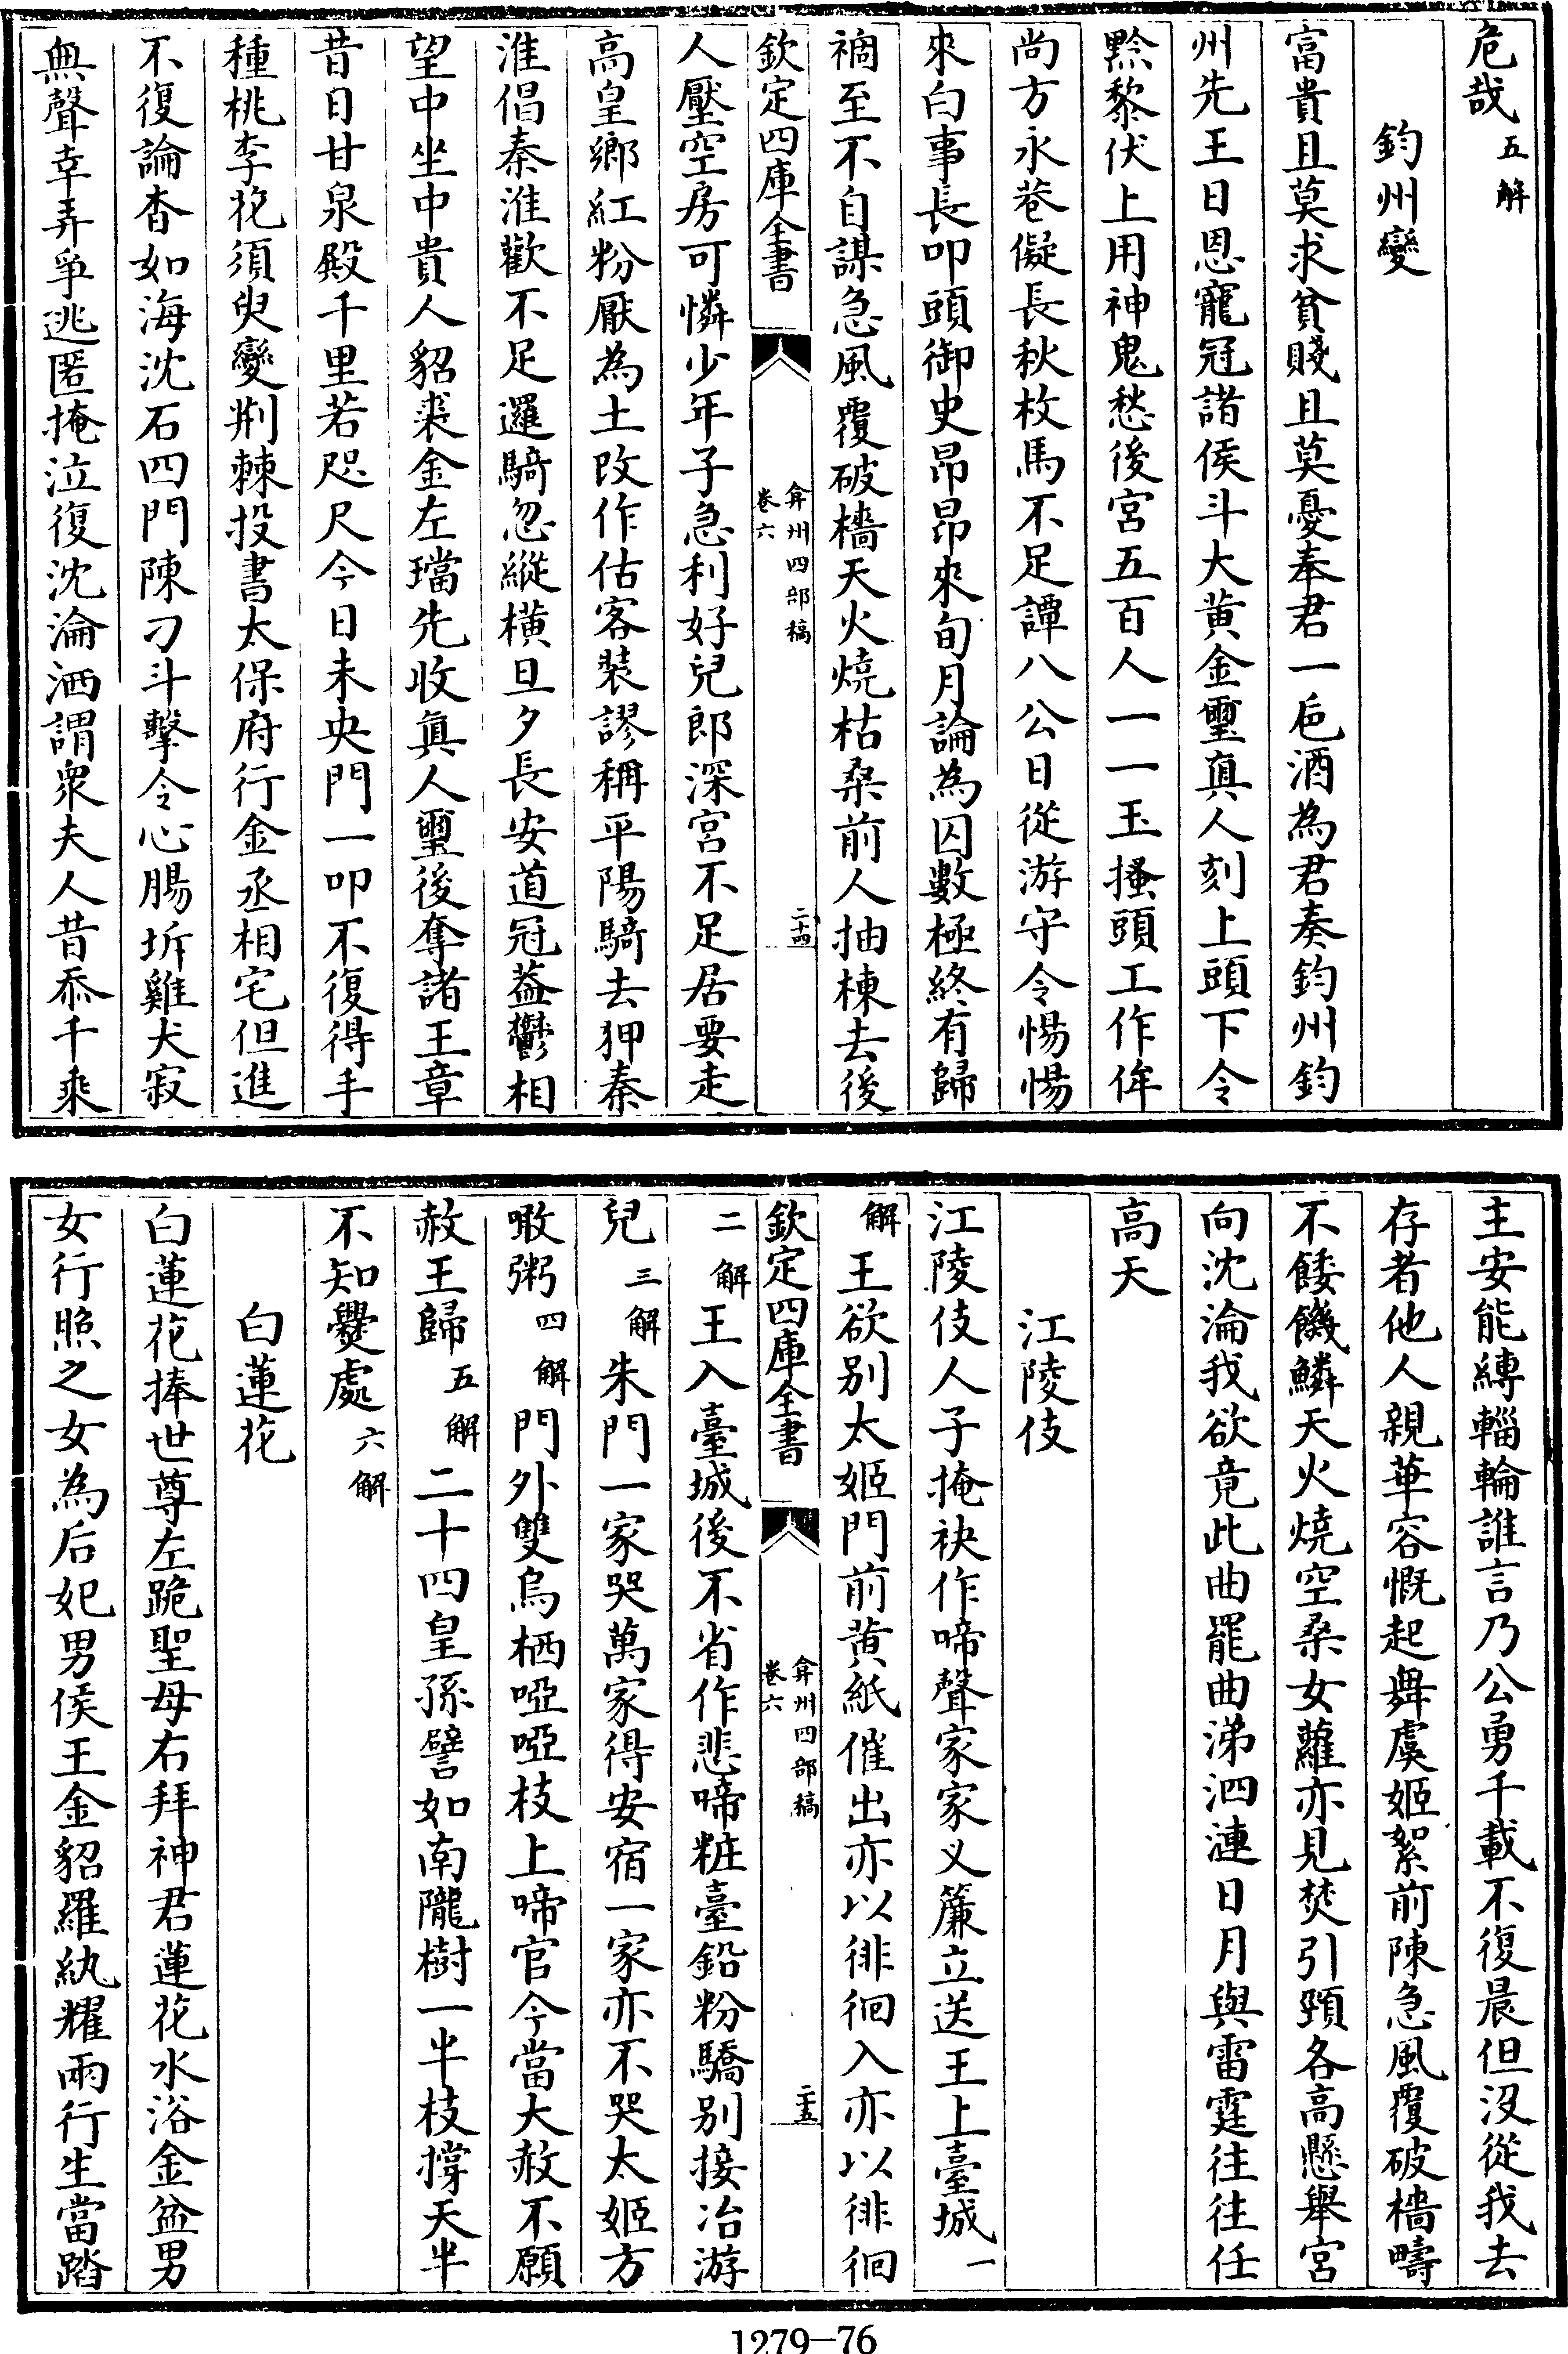 危哉五解
鈞州變
富貴且莫求貧賤且莫憂奉君一巵酒為君奏鈞州鈞
州先王日恩寵冠諸侯斗大黄金璽真人刻上頭下令
黔黎伏上用神鬼愁後宮五百人一一玉搔頭工作侔
尚方永巷儗長秋枚馬不足譚八公日從游守令惕惕
來白事長叩頭御史昂昂來旬月論為囚數極終有歸
禍至不自謀急風覆破檣天火燒枯桑前人抽棟去後
欽定四庫全書
弇州四部稿
卷六
二十四
人壓空房可憐少年子急利好兒郎深宮不足居要走
高皇鄉紅粉厭為土改作估客裝謬稱平陽騎去狎秦
淮倡秦淮歡不足邏騎忽縱横旦夕長安道冠蓋鬱相
望中坐中貴人貂裘金左璫先收真人璽後奪諸王章
昔日甘泉殿千里若咫尺今日未央門一叩不復得手
種桃李花須臾變荆棘投書太保府行金丞相宅但進
不復論杳如海沈石四門陳刁斗擊令心腸坼雞犬寂
無聲幸弄爭逃匿掩泣復沈淪洒謂衆夫人昔忝千乘
主安能縳輜輪誰言乃公勇千載不復晨但没從我去
存者他人親華容慨起舞虞姬絮前陳急風覆破檣疇
不餧饑鱗天火燒空桑女蘿亦見焚引頸各高懸舉宮
向沈淪我欲竟此曲此曲罷曲涕泗漣日月與雷霆往往任
高天
江陵伎
江陵伎人子掩袂作啼聲家家义簾立送王上臺城一
解王欲别太姬門前黄紙催出亦以徘徊入亦以徘徊
欽定四庫全書
弇州四部稿
卷六
二十五
二解王入臺城後不省作悲啼粧臺鉛粉驕别接冶游
兒三解朱門一家哭萬家得安宿一家亦不哭太姬方
噉粥四解門外雙烏栖啞啞枝上啼官今當大赦不願
赦王歸五解二十四皇孫譬如南隴樹一半枝撐天半
不知釁處六解
白蓮花
白蓮花捧世尊左跪聖母右拜神君蓮花水浴金盆男
女行照之女為后妃男侯王金貂羅紈耀兩行生當踏
1279—76